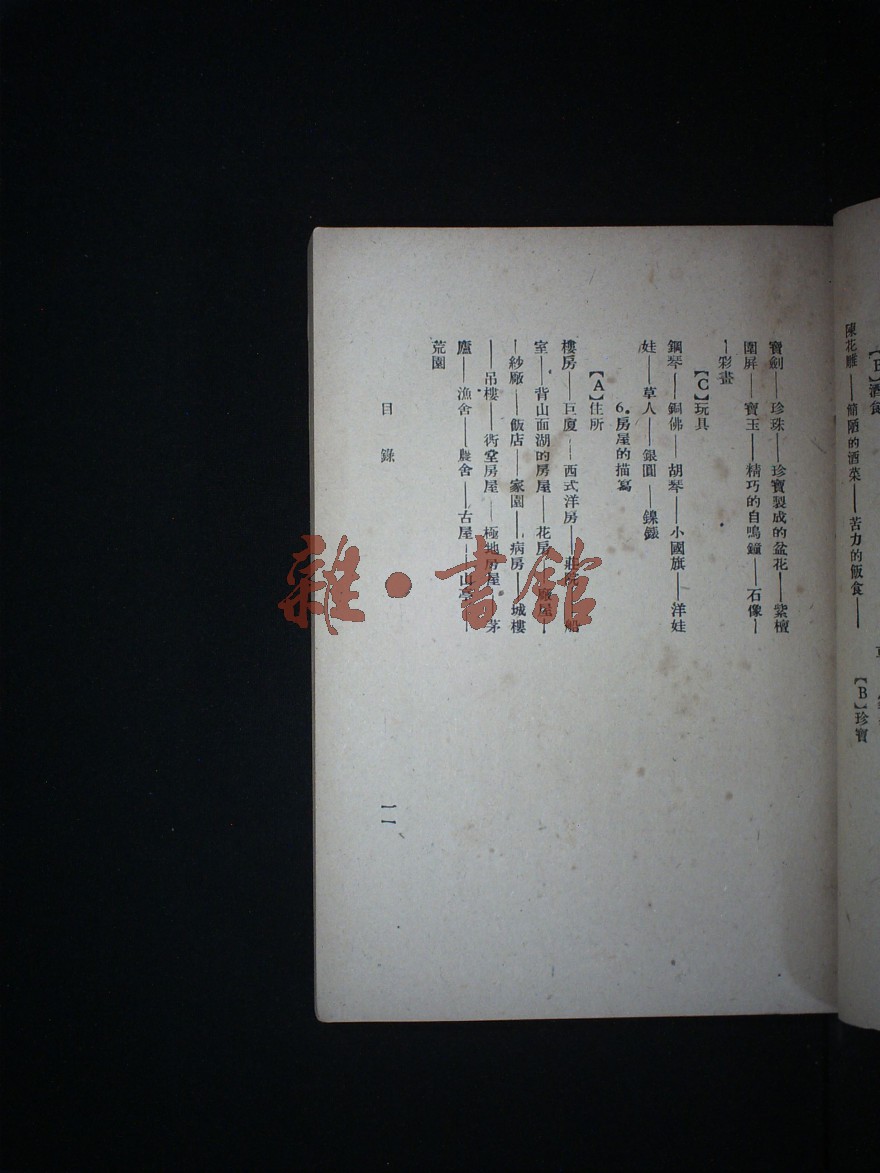 【B】酒食
陳花雕——簡陋的酒菜——苦力的飯食——
【B】珍寶
寶劍——珍珠——珍寶製成的盆花——紫檀
圍屏——寶玉——精巧的自鳴鐘——石像—
—彩畫
【C】玩具
鋼琴——銅佛——胡琴——小國旗——洋娃
娃——草人——銀圓——鎳鏰
6.房屋的描寫
【A】住所
樓房——巨廈——西式洋房——莊院——船
室——背山面湖的房屋——花房——廠屋—
—紗廠——飯店——家園——病房——城樓
——吊樓——衖堂房屋——極地房屋——茅
廬——漁舍——農舍——古屋——山亭——
荒園
目錄
一一
雜·書館